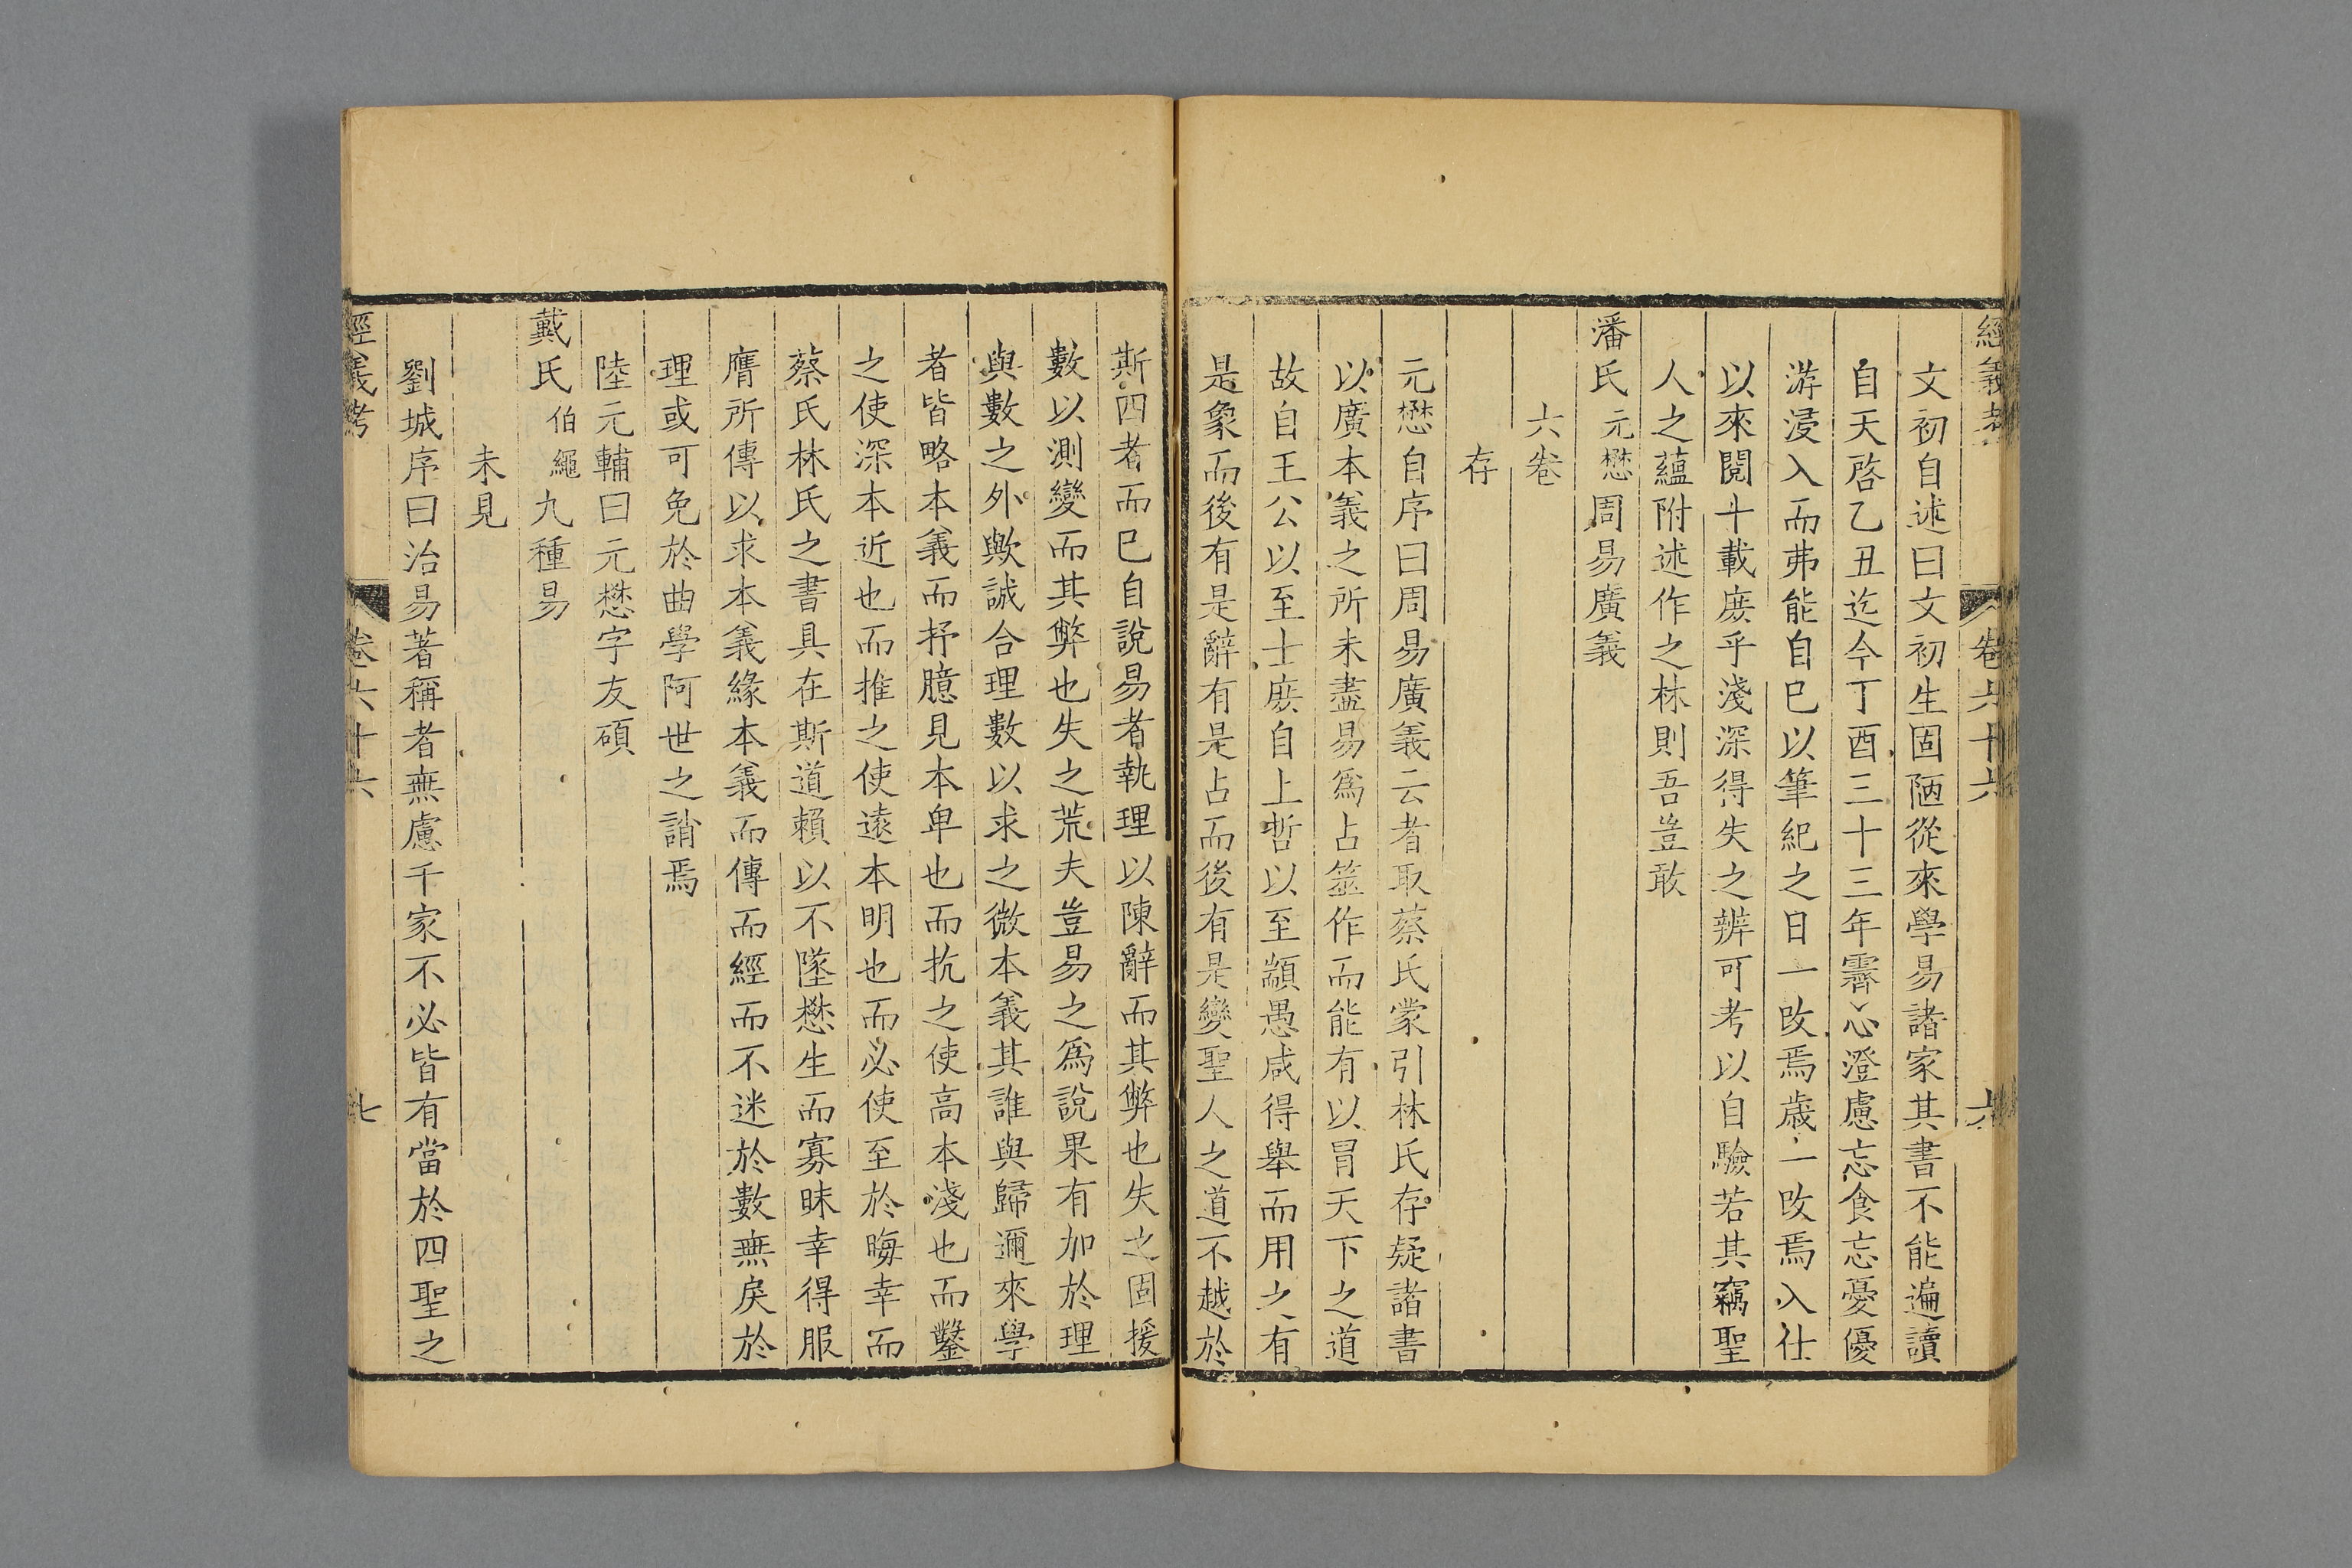 經義考 卷六十六 六
文初自述曰文初生固陋從來學易諸家其書不能遍讀
自天啓乙丑迄今丁酉三十三年齋心澄慮忘食忘憂優
游浸入而弗能自已以筆紀之日一改焉歲一改焉入仕
以來閱十載庻乎淺深得失之辨可考以自驗若其竊聖
人之蘊附述作之林則吾豈敢
潘氏元懋周易廣義
六卷
存
元懋自序曰周易廣義云者取蔡氏蒙引林氏存疑諸書
以廣本義之所未盡易爲占筮作而能有以冒天下之道
故自王公以至士庻自上哲以至顓愚咸得舉而用之有
是象而後有是辭有是占而後有是變聖人之道不越於
斯四者而已自說易者執理以陳辭而其弊也失之固援
數以測變而其弊也失之荒夫豈易之爲說果有加於理
與數之外歟誠合理數以求之微本義其誰與歸邇來學
者皆略本義而抒臆見本卑也而抗之使高本淺也而鑿
之使深本近也而推之使遠本明也而必使至於晦幸而
蔡氏林氏之書具在斯道賴以不墜懋生而寡昧幸得服
膺所傳以求本義緣本義而傳而經而不迷於數無戾於
理或可免於曲學阿世之誚焉
陸元輔曰元懋字友碩
戴氏伯繩九種易
未見
劉城序曰治易著稱者無慮千家不必皆有當於四聖之
經義考 卷六十六 七